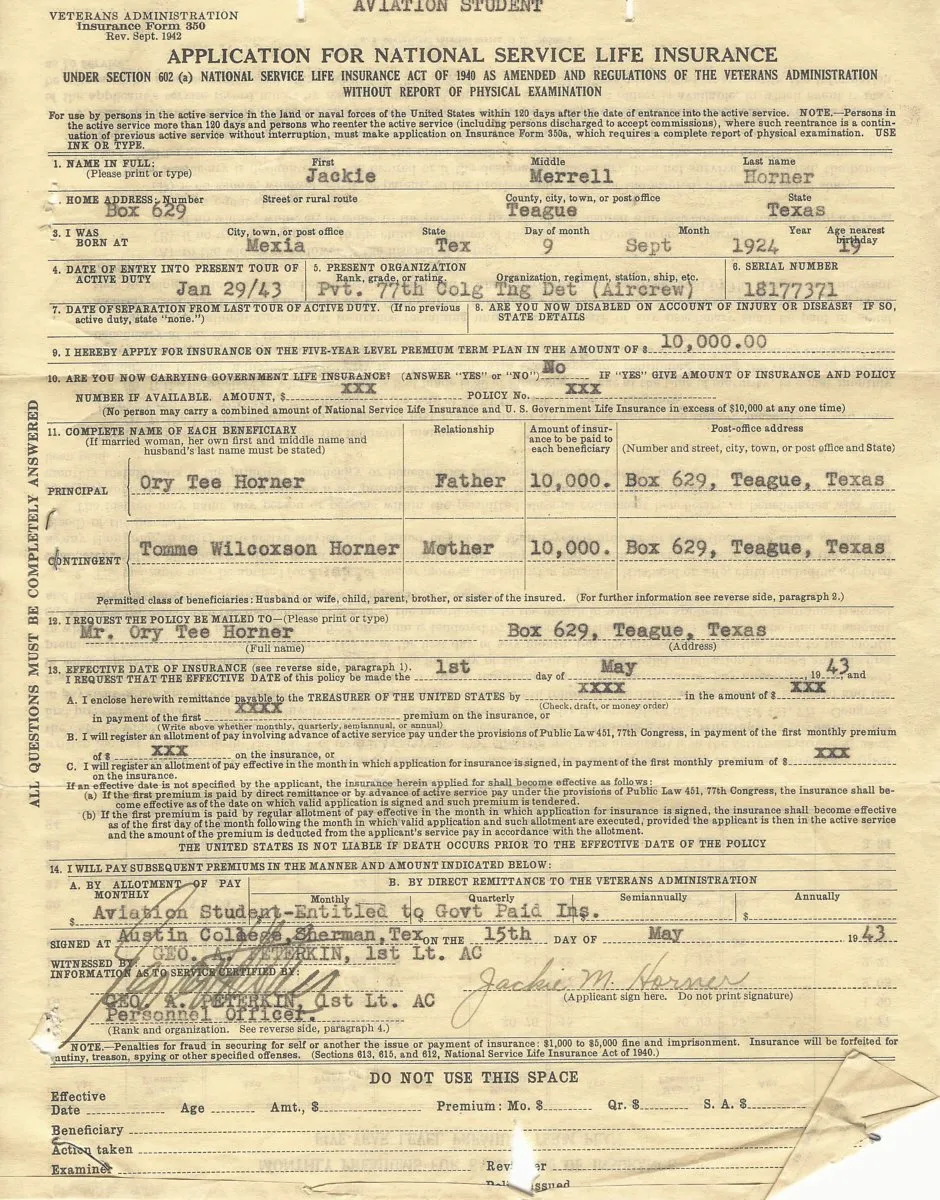 AVIATION STUDENT
VETERANS ADMINISTRATION
Insurance Form 350
Rev. Sept. 1942
APPLICATION FOR NATIONAL SERVICE LIFE INSURANCE
UNDER SECTION 602 (a) NATIONAL SERVICE LIFE INSURANCE ACT OF 1940 AS AMENDED AND REGULATIONS OF THE VETERANS ADMINISTRATION
WITHOUT REPORT OF PHYSICAL EXAMINATION
For use by persons in the active service in the land or naval forces of the United States within 120 days after the date of entrance into the active service. NOTE.—Persons in
the active service more than 120 days and persons who reenter the active service (including persons discharged to accept commissions), where such reentrance is a contin-
uation of previous active service without interruption, must make application on Insurance Form 350a, which requires a complete report of physical examination. USE
INK OR TYPE.
1. NAME IN FULL: First Middle Last name
(Please print or type) Jackie Merrell Horner
. HOME ADDRESS: Number Street or rural route County, city, town, or post office State
Box 629 Teague Texas
3. I WAS BORN AT City, town, or post office State Day of month Month Year Age nearest birthday
Mexia Tex 9 Sept 1924 19
4. DATE OF ENTRY INTO PRESENT TOUR OF ACTIVE DUTY 5. PRESENT ORGANIZATION Rank, grade, or rating. Organization, regiment, station, ship, etc. 6. SERIAL NUMBER
Jan 29/43 Pvt. 77th Colg Tng Det (Aircrew) 18177371
7. DATE OF SEPARATION FROM LAST TOUR OF ACTIVE DUTY. (If no previous 8. ARE YOU NOW DISABLED ON ACCOUNT OF INJURY OR DISEASE? IF SO,
active duty, state "none.") STATE DETAILS
9. I HEREBY APPLY FOR INSURANCE ON THE FIVE-YEAR LEVEL PREMIUM TERM PLAN IN THE AMOUNT OF $ 10,000.00
10. ARE YOU NOW CARRYING GOVERNMENT LIFE INSURANCE? (ANSWER "YES" or "NO") No IF "YES" GIVE AMOUNT OF INSURANCE AND POLICY
NUMBER IF AVAILABLE. AMOUNT, $ XXX POLICY No. XXX
(No person may carry a combined amount of National Service Life Insurance and U. S. Government Life Insurance in excess of $10,000 at any one time)
ALL QUESTIONS MUST BE COMPLETELY ANSWERED
11. COMPLETE NAME OF EACH BENEFICIARY Relationship Amount of insur- Post-office address
(If married woman, her own first and middle name and ance to be paid to (Number and street, city, town, or post office and State)
husband's last name must be stated) each beneficiary
PRINCIPAL Ory Tee Horner Father 10,000. Box 629, Teague, Texas
CONTINGENT Tomme Wilcoxson Horner Mother 10,000. Box 629, Teague, Texas
Permitted class of beneficiaries: Husband or wife, child, parent, brother, or sister of the insured. (For further information see reverse side, paragraph 2.)
12. I REQUEST THE POLICY BE MAILED TO—(Please print or type)
Mr. Ory Tee Horner Box 629, Teague, Texas
(Full name) (Address)
13. EFFECTIVE DATE OF INSURANCE (see reverse side, paragraph 1).
I REQUEST THAT THE EFFECTIVE DATE of this policy be made the 1st day of May, 1943 and
A. I enclose herewith remittance payable to the TREASURER OF THE UNITED STATES by XXXX in the amount of $ XXX
(Check, draft, or money order)
in payment of the first XXXX premium on the insurance, or
(Write above whether monthly, quarterly, semiannual, or annual)
B. I will register an allotment of pay involving advance of active service pay under the provisions of Public Law 451, 77th Congress, in payment of the first monthly premium
of $ XXX on the insurance, or
C. I will register an allotment of pay effective in the month in which application for insurance is signed, in payment of the first monthly premium of $ XXX
on the insurance.
If an effective date is not specified by the applicant, the insurance herein applied for shall become effective as follows:
(a) If the first premium is paid by direct remittance or by advance of active service pay under the provisions of Public Law 451, 77th Congress, the insurance shall be-
come effective as of the date on which valid application is signed and such premium is tendered.
(b) If the first premium is paid by regular allotment of pay effective in the month in which application for insurance is signed, the insurance shall become effective
as of the first day of the month following the month in which valid application and such allotment are executed, provided the applicant is then in the active service
and the amount of the premium is deducted from the applicant's service pay in accordance with the allotment.
THE UNITED STATES IS NOT LIABLE IF DEATH OCCURS PRIOR TO THE EFFECTIVE DATE OF THE POLICY
14. I WILL PAY SUBSEQUENT PREMIUMS IN THE MANNER AND AMOUNT INDICATED BELOW:
A. BY ALLOTMENT OF PAY B. BY DIRECT REMITTANCE TO THE VETERANS ADMINISTRATION
MONTHLY Monthly Quarterly Semiannually Annually
$ Aviation Student-Entitled to Govt Paid Ins. $
SIGNED AT Austin College, Sherman, Tex ON THE 15th DAY OF May 1943
WITNESSED BY: GEO. A. PETERKIN, 1st Lt. AC
INFORMATION AS TO SERVICE CERTIFIED BY: Jackie M. Horner
GEO. A. PETERKIN, 1st Lt. AC (Applicant sign here. Do not print signature)
Personnel Officer.
(Rank and organization. See reverse side, paragraph 4.)
NOTE.—Penalties for fraud in securing for self or another the issue or payment of insurance: $1,000 to $5,000 fine and imprisonment. Insurance will be forfeited for
mutiny, treason, spying or other specified offenses. (Sections 613, 615, and 612, National Service Life Insurance Act of 1940.)
DO NOT USE THIS SPACE
Effective
Date Age Amt., $ Premium: Mo. $ Qr. $ S. A. $
Beneficiary
Action taken
Examiner
issued